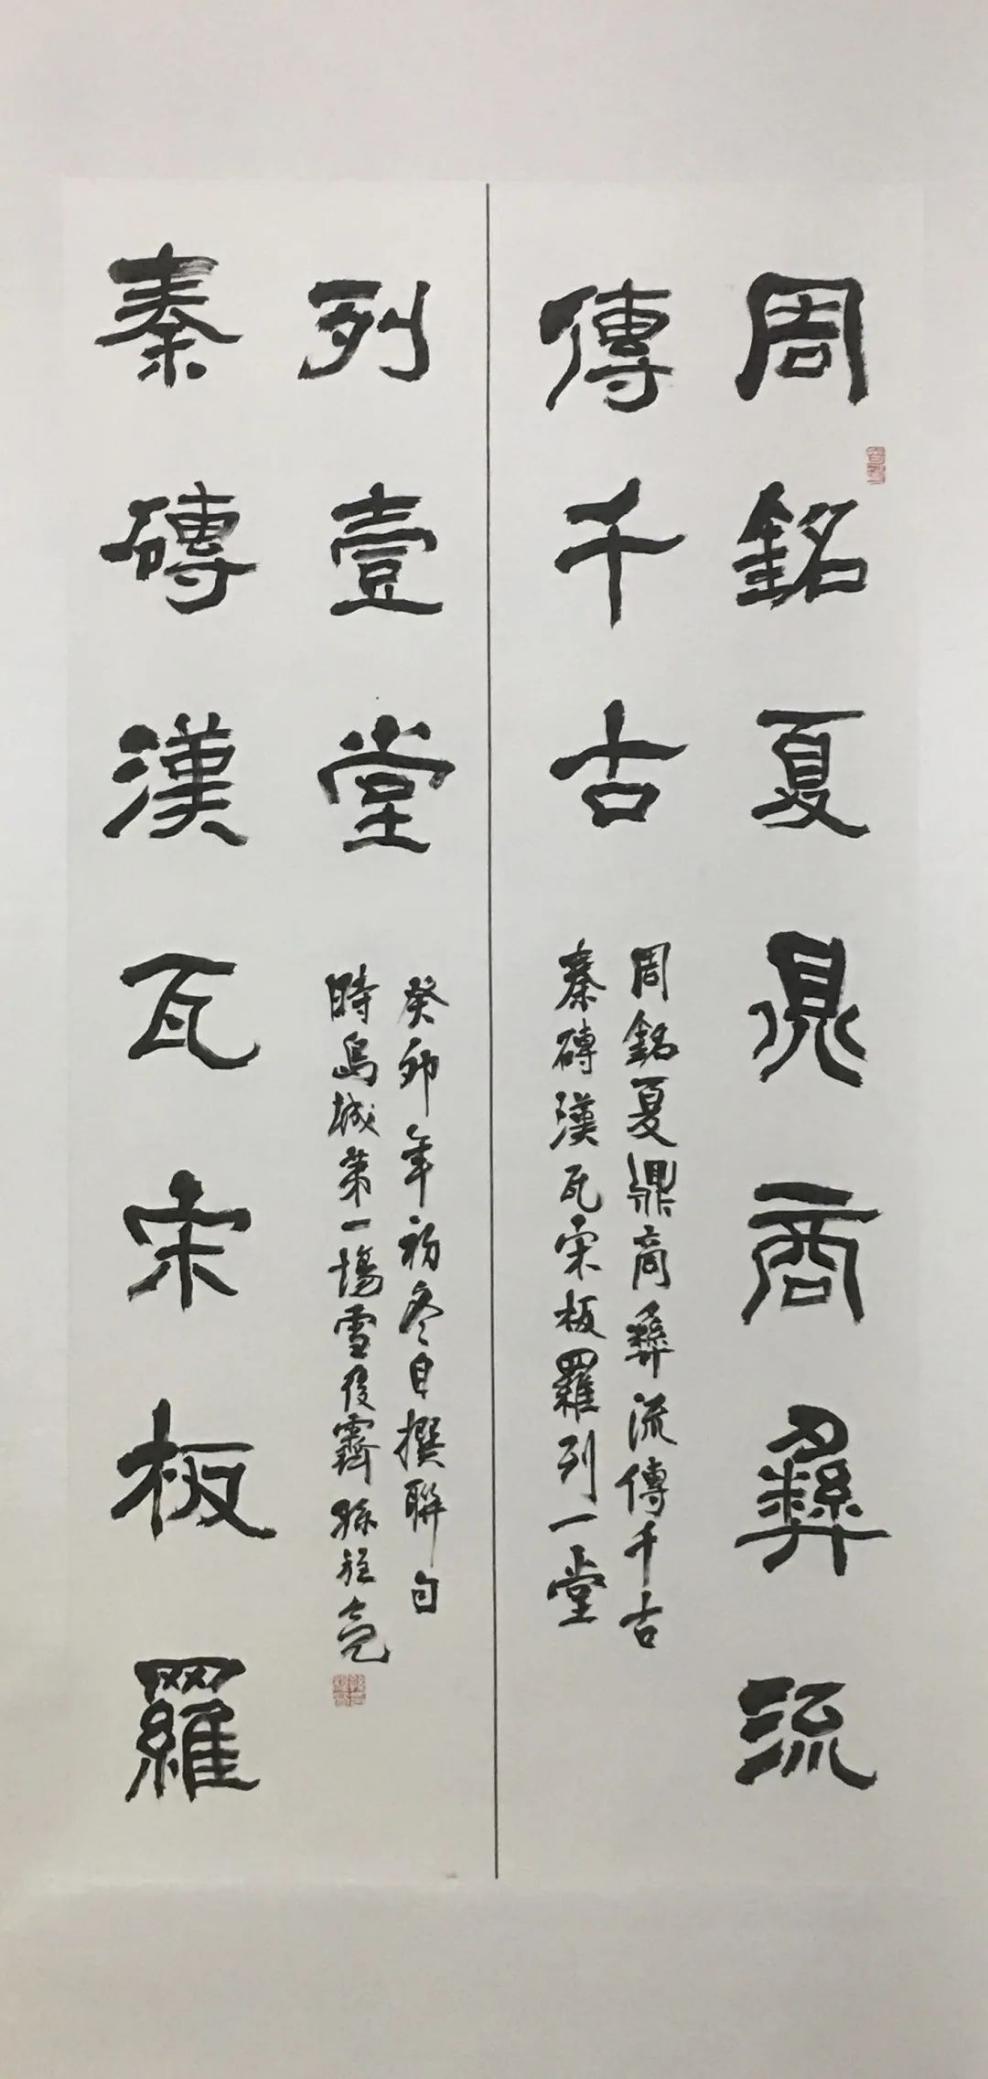 周銘夏鼎商彝流
傳千古
周銘夏鼎商彝流傳千古
秦磚漢瓦宋板羅列一堂
秦磚漢瓦宋板羅
列壹堂
癸卯年初冬自撰聯句
時島城第一場雪後霽孫